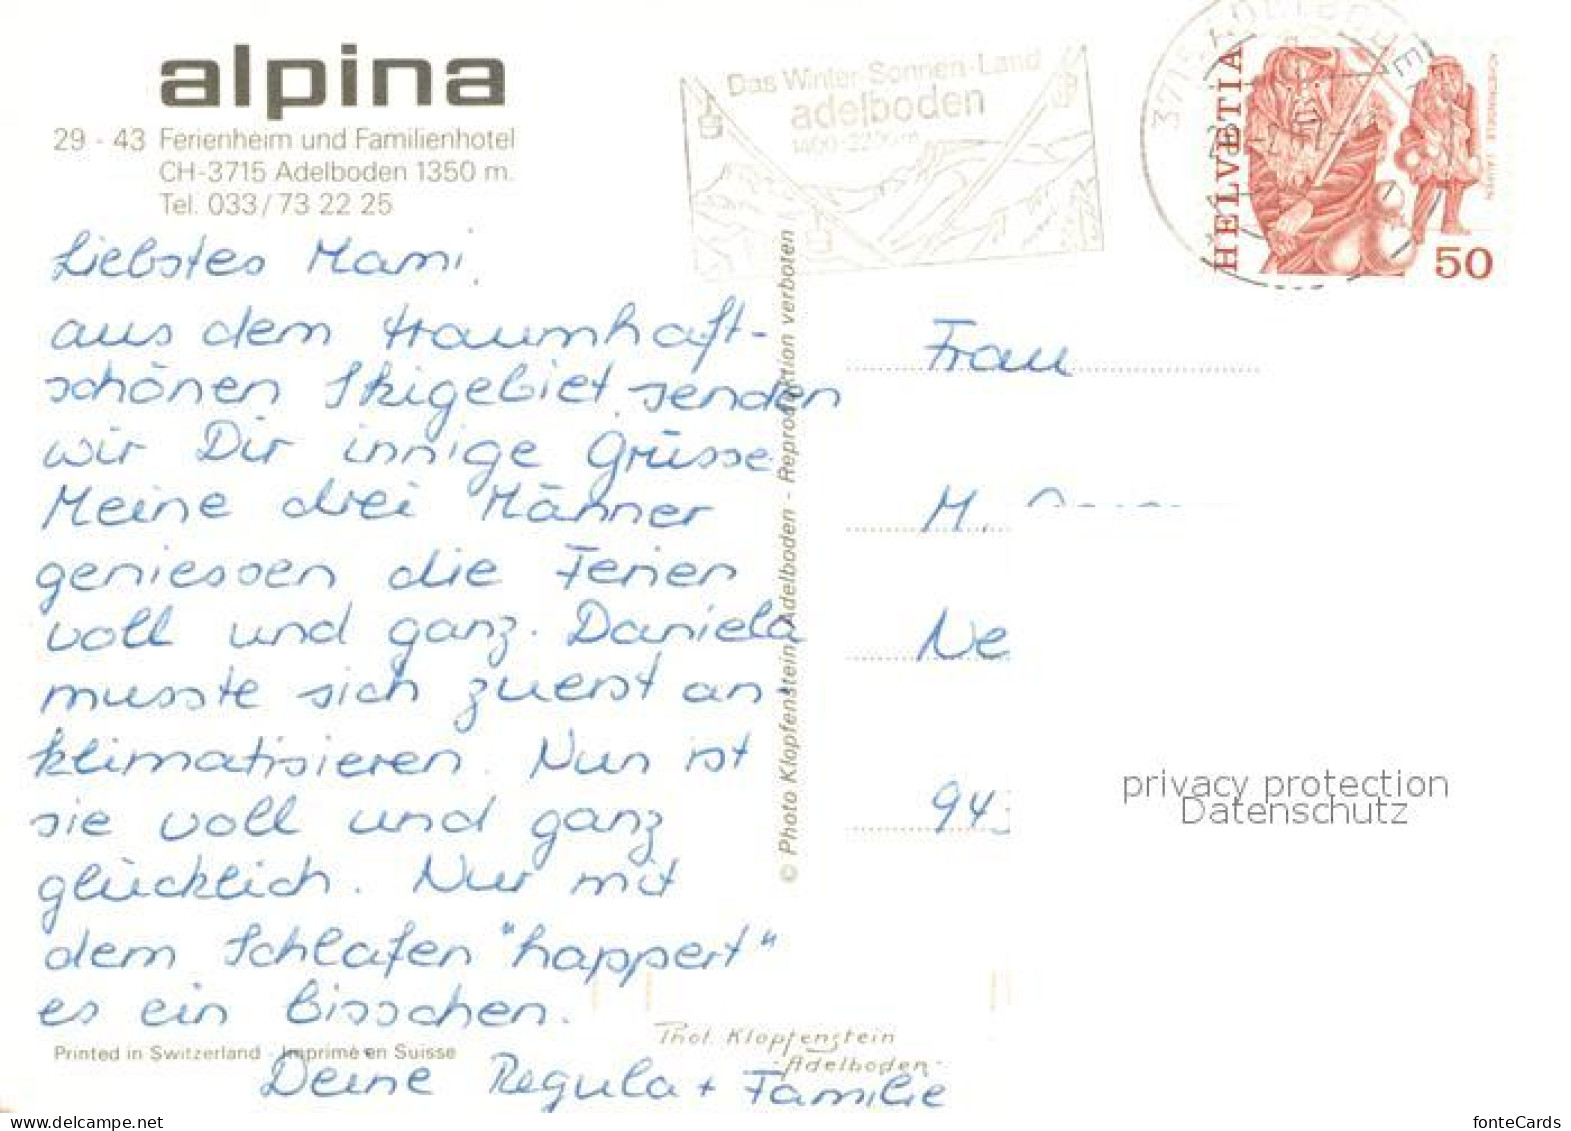 alpina
29 - 43 Ferienheim und Familienhotel
CH-3715 Adelboden 1350 m.
Tel. 033/73 22 25
Das Winter-Sonnen-Land
adelboden
3715 ADELBODEN
HELVETIA
50
Liebstes Mami,
aus dem traumhaft-
schönen Skigebiet senden
wir Dir innige Grüsse
Meine drei Männer
geniessen die Ferien
voll und ganz. Daniela
musste sich zuerst an
klimatisieren. Nun ist
sie voll und ganz
glücklich. Nur mit
dem Schlafen "happert"
es ein bisschen.
Deine Regula + Familie
© Photo Klopfenstein, Adelboden - Reproduktion verboten
Frau
M.
Ne
94
privacy protection
Datenschutz
Printed in Switzerland - Imprimé en Suisse
Phot. Klopfenstein
Adelboden
fonteCards